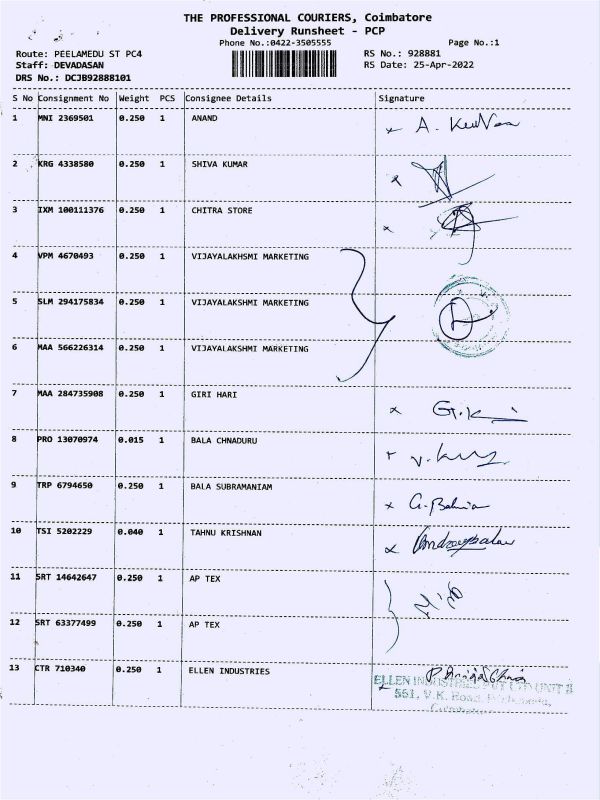 THE PROFESSIONAL COURIERS, Coimbatore
Delivery Runsheet - PCP
Phone No.:0422-3505555 Page No.:1
Route: PEELAMEDU ST PC4 RS No.: 928881
Staff: DEVADASAN RS Date: 25-Apr-2022
DRS No.: DCJB92888101
S No Consignment No Weight PCS Consignee Details Signature
1 MNI 2369501 0.250 1 ANAND A.
2 KRG 4338580 0.250 1 SHIVA KUMAR
3 IXM 100111376 0.250 1 CHITRA STORE
4 VPM 4670493 0.250 1 VIJAYALAKHSMI MARKETING
5 SLM 294175834 0.250 1 VIJAYALAKSHMI MARKETING
6 MAA 566226314 0.250 1 VIJAYALAKSHMI MARKETING
7 MAA 284735908 0.250 1 GIRI HARI
8 PRO 13070974 0.015 1 BALA CHNADURU
9 TRP 6794650 0.250 1 BALA SUBRAMANIAM
10 TSI 5202229 0.040 1 TAHNU KRISHNAN
11 SRT 14642647 0.250 1 AP TEX
12 SRT 63377499 0.250 1 AP TEX
13 CTR 710340 0.250 1 ELLEN INDUSTRIES
ELLEN UNIT II
551, V.K. Road,